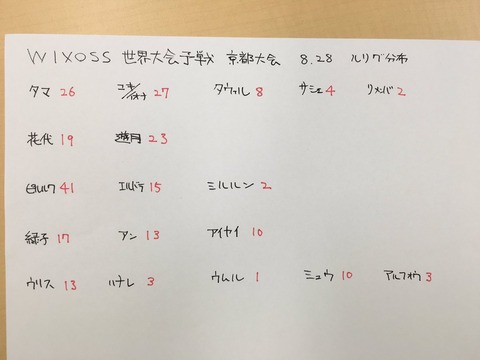 WIXOSS 世界大会予戦 京都大会 8.28 ルリグ分布
タマ 26 ユキ/イオナ 27 タウィル 8 サシェ 4 リメンバ 2
花代 19 遊月 23
ピルルク 41 エルドラ 15 ミルルン 2
緑子 17 アン 13 アイヤイ 10
ウリス 13 ハナレ 3 ウムル 1 ミュウ 10 アルフォウ 3